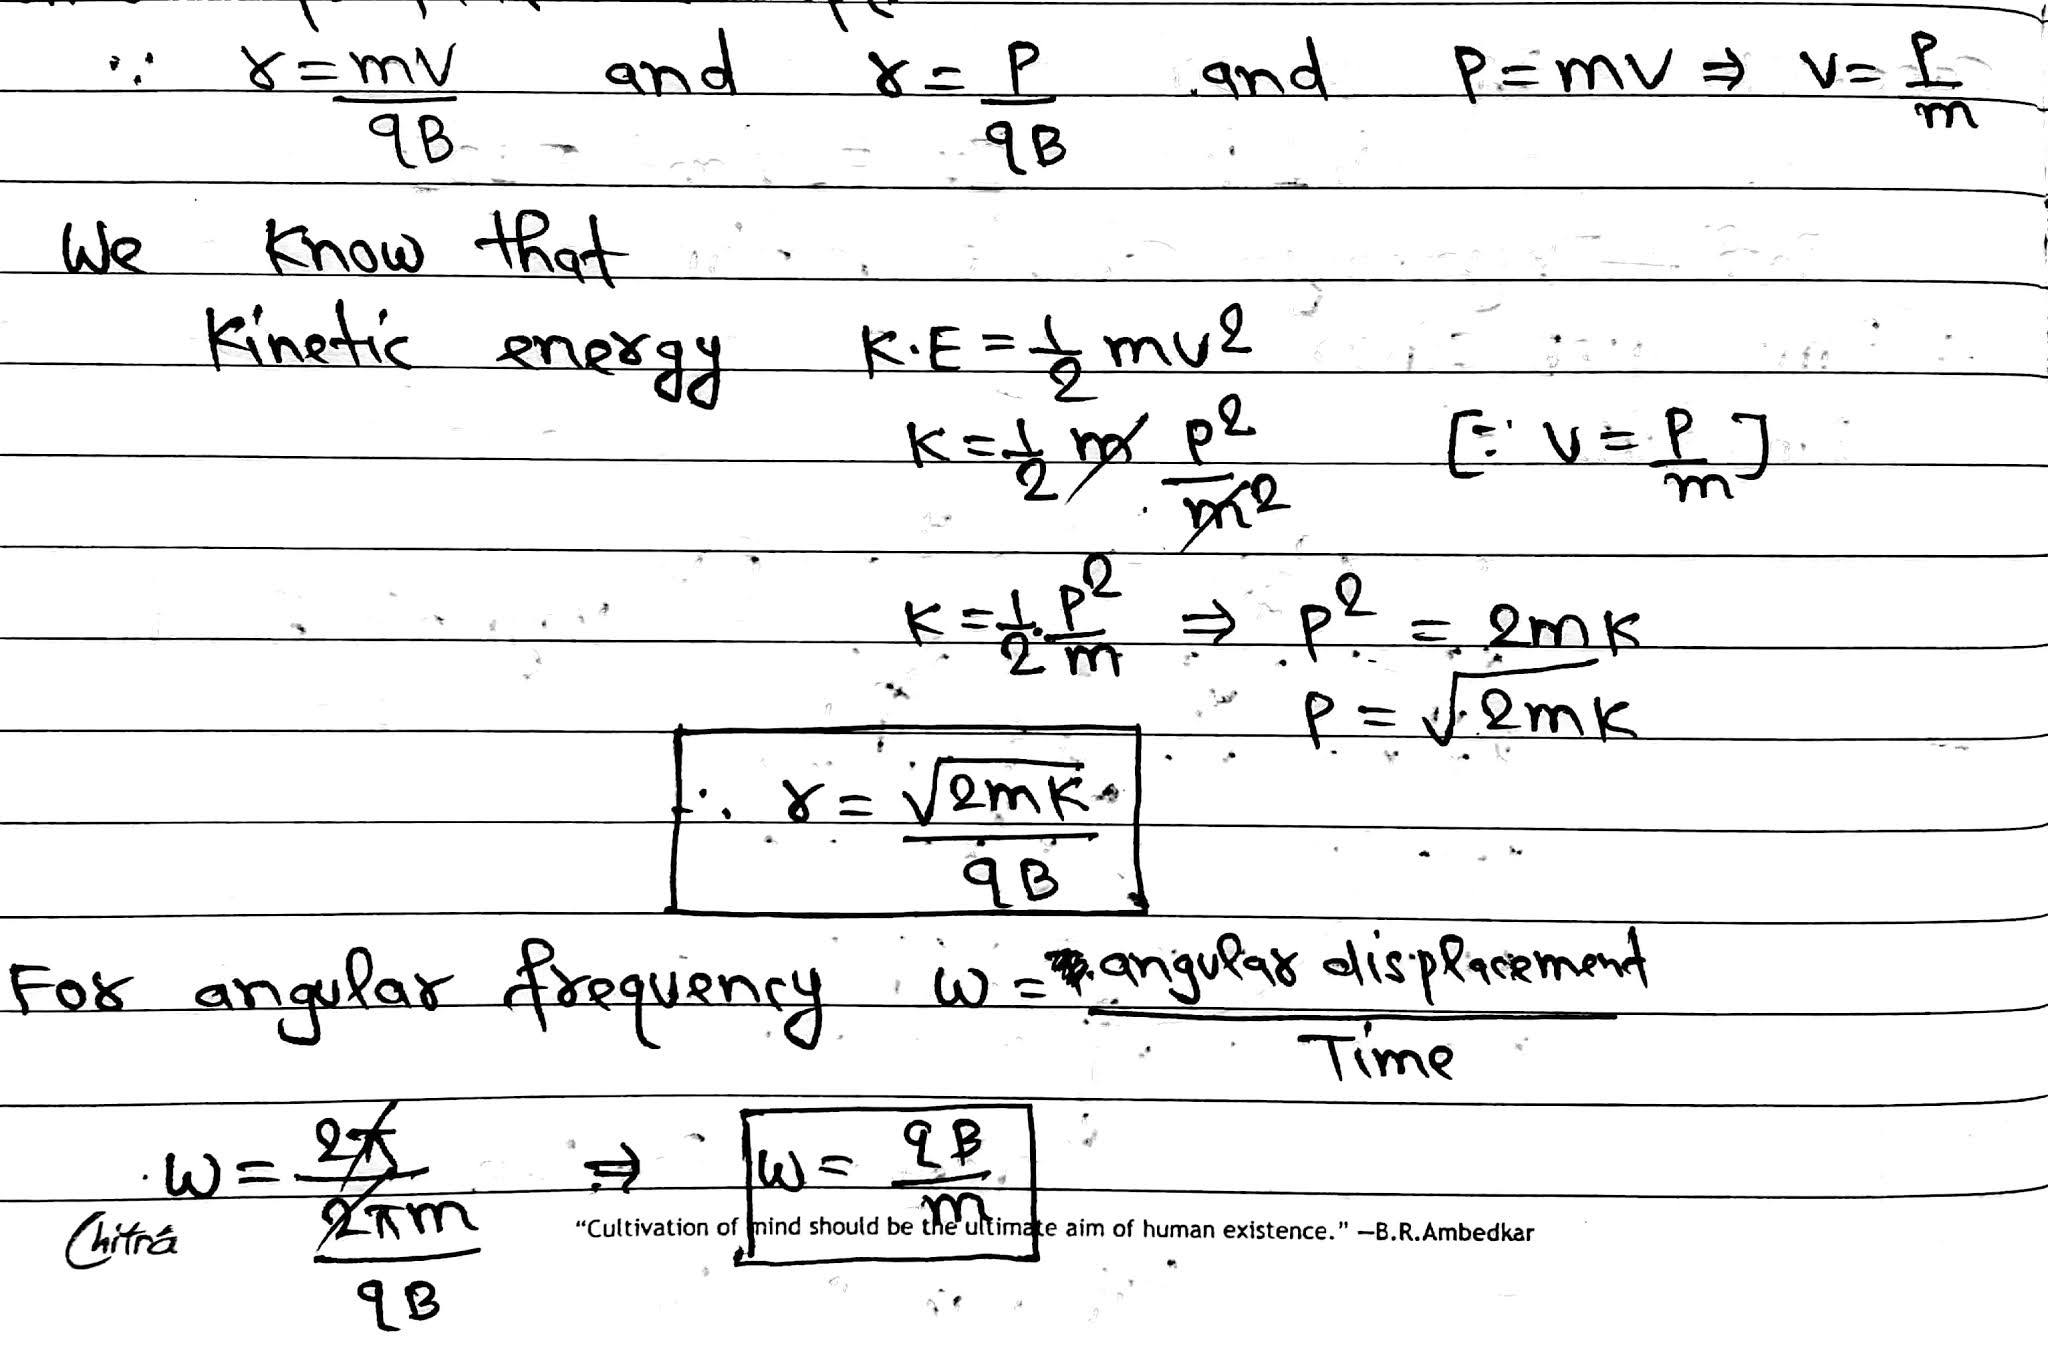 ∵ r = mv/qB and r = P/qB and P = mv ⇒ v = P/m
We know that
Kinetic energy K.E = 1/2 mv²
K = 1/2 m P²/m² [∵ v = P/m]
K = 1/2 · P²/m ⇒ P² = 2mK
P = √2mK
∴ r = √2mK/qB
For angular frequency ω = angular displacement/Time
ω = 2π/(2πm/qB) ⇒ ω = qB/m
Chitra “Cultivation of mind should be the ultimate aim of human existence.” —B.R.Ambedkar